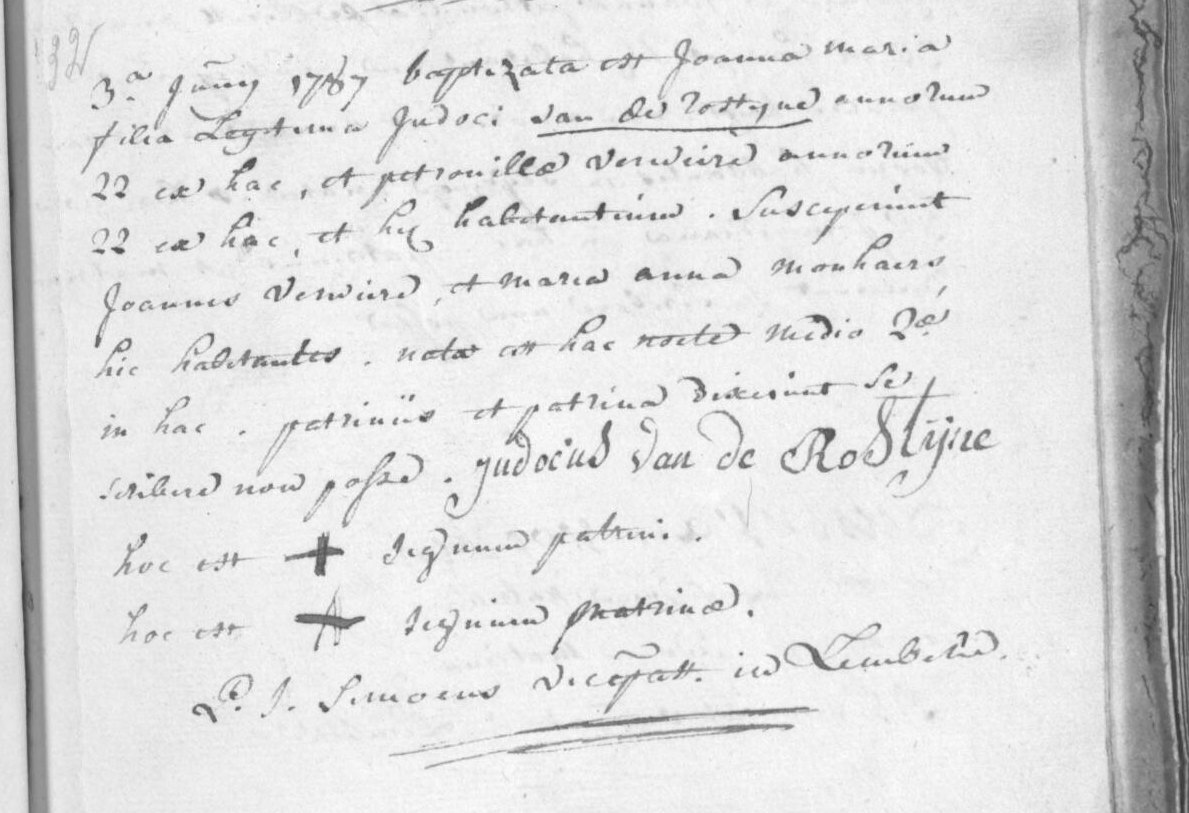 32
3.a Junij 1787 baptizata est Joanna maria
filia Legitima Judoci van de rostyne annorum
22 ex hac, et petronillæ Verviere annorum
22 ex hac, et hij habitantium. Susceperunt
Joannes Verviere, et maria anna monhaers,
hic habitantes. nata est hac nocte medio 2.æ
in hac. patrinus et patrina dixerunt se
scribere non posse. judocus van de Rostijne
hoc est + signum patrini.
hoc est + signum matrinæ.
P. J. Simoens vice past. in Lembeke.